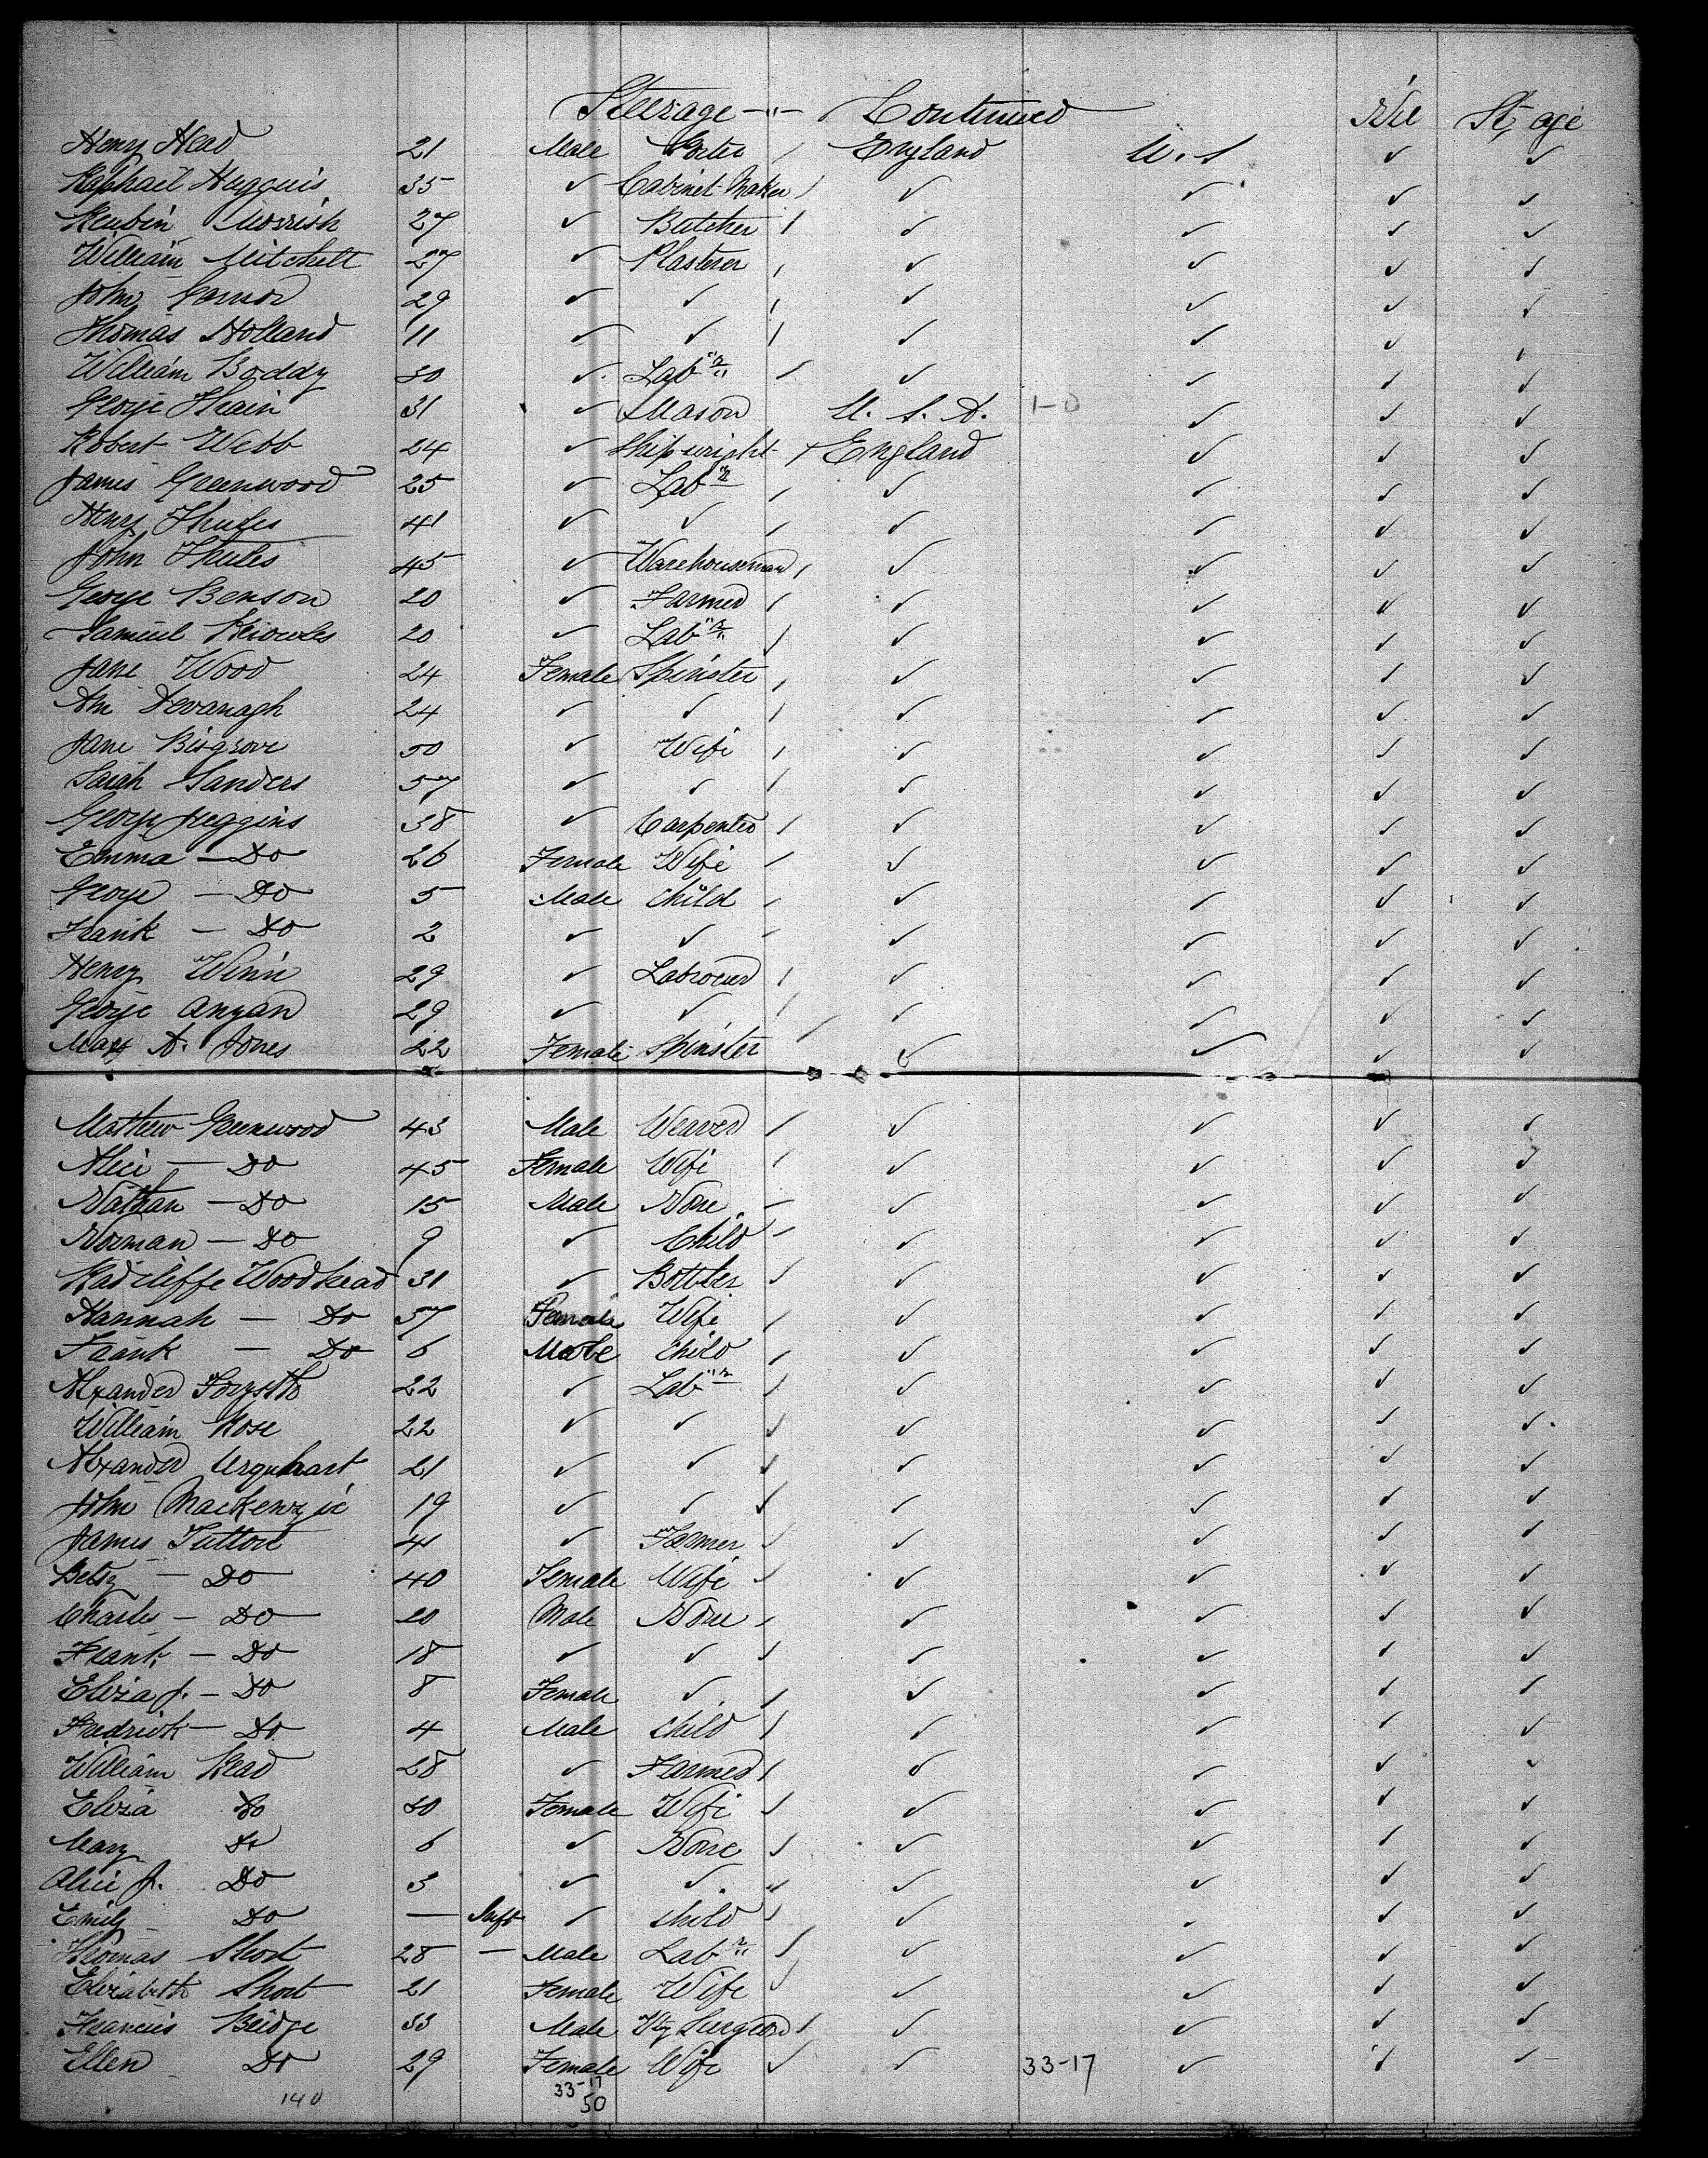 Steerage -"- Continued Nil St, age
Henry Head 21 Male Porter / England U.S ✓ ✓
Raphail Hugguis 35 ✓ Cabinet Maker / ✓ ✓ ✓ ✓
Reubin Morrish 27 ✓ Butcher / ✓ ✓ ✓ ✓
William Mitchell 27 ✓ Plasterer / ✓ ✓ ✓ ✓
John 29 ✓ ✓ / ✓ ✓ ✓ ✓
Thomas Holland 11 ✓ ✓ / ✓ ✓ ✓ ✓
William Boddy 30 ✓ Lab"r" / ✓ ✓ ✓ ✓
George Thain 31 ✓ Mason U.S.A. 1-0 ✓ ✓ ✓
Robert Webb 24 ✓ Shipwright / England ✓ ✓ ✓
James Greenwood 25 ✓ Lab"r / ✓ ✓ ✓ ✓
Henry 41 ✓ ✓ / ✓ ✓ ✓ ✓
John 45 ✓ Warehouseman / ✓ ✓ ✓ ✓
George Benson 20 ✓ Farmer / ✓ ✓ ✓ ✓
Samuel Knowles 20 ✓ Lab"r" / ✓ ✓ ✓ ✓
Jane Wood 24 Female Spinster / ✓ ✓ ✓ ✓
Ann Kevanagh 24 ✓ ✓ / ✓ ✓ ✓ ✓
Jane Bisgrove 50 ✓ Wife / ✓ ✓ ✓ ✓
Sarah Sanders 57 ✓ ✓ / ✓ ✓ ✓ ✓
George Juggins 38 ✓ Carpenter / ✓ ✓ ✓ ✓
Emma - Do 26 Female Wife / ✓ ✓ ✓ ✓
George - Do 5 Male Child / ✓ ✓ ✓ ✓
Frank - Do 2 ✓ ✓ / ✓ ✓ ✓ ✓
Henry Winn 29 ✓ Labourer / ✓ ✓ ✓ ✓
George Anyan 29 ✓ ✓ / ✓ ✓ ✓ ✓
Mary A. Jones 22 Female Spinster / ✓ ✓ ✓ ✓
Mathew Greenwood 43 Male Weaver / ✓ ✓ ✓ ✓
Alice - Do 45 Female Wife / ✓ ✓ ✓ ✓
Nathan - Do 15 Male None / ✓ ✓ ✓ ✓
Norman - Do 9 ✓ Child / ✓ ✓ ✓ ✓
Radcliffe Woodhead 31 ✓ Bottler / ✓ ✓ ✓ ✓
Hannah - Do 37 Female Wife / ✓ ✓ ✓ ✓
Frank - Do 6 Male Child / ✓ ✓ ✓ ✓
Alxander Forgsth 22 ✓ Lab"r / ✓ ✓ ✓ ✓
William Rose 22 ✓ ✓ / ✓ ✓ ✓ ✓
Alxander Urquhart 21 ✓ ✓ ✓ ✓ ✓ ✓ ✓
John Mackenzie 19 ✓ ✓ ✓ ✓ ✓ ✓ ✓
James Tutton 41 ✓ Farmer / ✓ ✓ ✓ ✓
Betsy - Do 40 Female Wife / ✓ ✓ ✓ ✓
Charles - Do 20 Male None / ✓ ✓ ✓ ✓
Frank - Do 18 ✓ ✓ / ✓ ✓ ✓ ✓
Eliza J. - Do 8 Female ✓ / ✓ ✓ ✓ ✓
Fredrick - Do 4 Male Child / ✓ ✓ ✓ ✓
William Read 28 ✓ Farmer / ✓ ✓ ✓ ✓
Eliza Do 30 Female Wife / ✓ ✓ ✓ ✓
Mary Do 6 ✓ None / ✓ ✓ ✓ ✓
Alice J. Do 3 ✓ ✓ / ✓ ✓ ✓ ✓
Emily Do — Inft ✓ Child / ✓ ✓ ✓ ✓
Thomas Short 28 — Male Lab"r" / ✓ ✓ ✓ ✓
Elizabeth Short 21 Female Wife / ✓ ✓ ✓ ✓
Francis Bridge 33 Male Vty Surgeon / ✓ ✓ ✓ ✓
Ellen Do 29 Female Wife ✓ ✓ 33-17 ✓ ✓ ✓
33-17
140 50